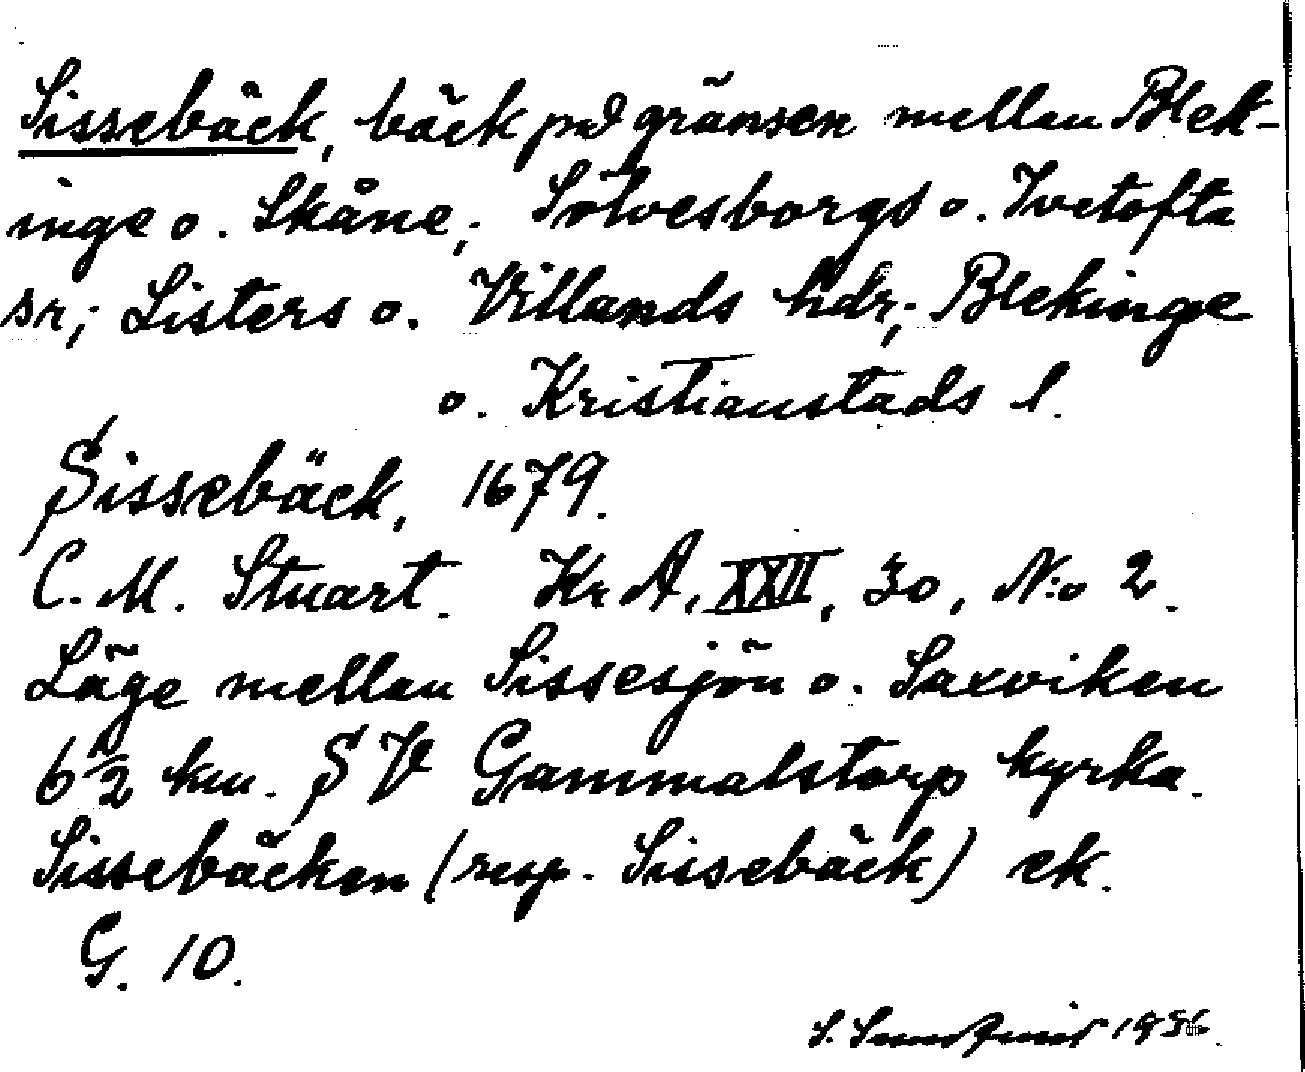 Sissebäck, bäck på gränsen mellan Blek-
inge o. Skåne; Sölvesborgs o. Ivetofta
sr; Listers o. Villands hdr; Blekinge
o. Kristianstads l.
Sissebäck, 1679.
C. M. Stuart. Kr A, XXII, 30, N:o 2.
Läge mellan Sissesjön o. Saxviken
6 1/2 km. SV Gammalstorp kyrka.
Sissebäcken (resp. Sissebäck) ek.
G. 10.
S. 1936.